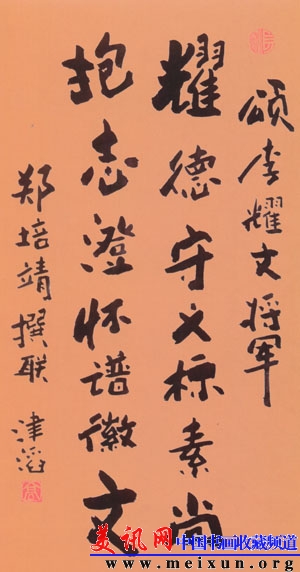 頌李耀文将军
耀德守义标素尚
抱志澄怀谱徽文
郑培靖撰联 津滔
美讯网 中国书画收藏频道
www.meixun.org